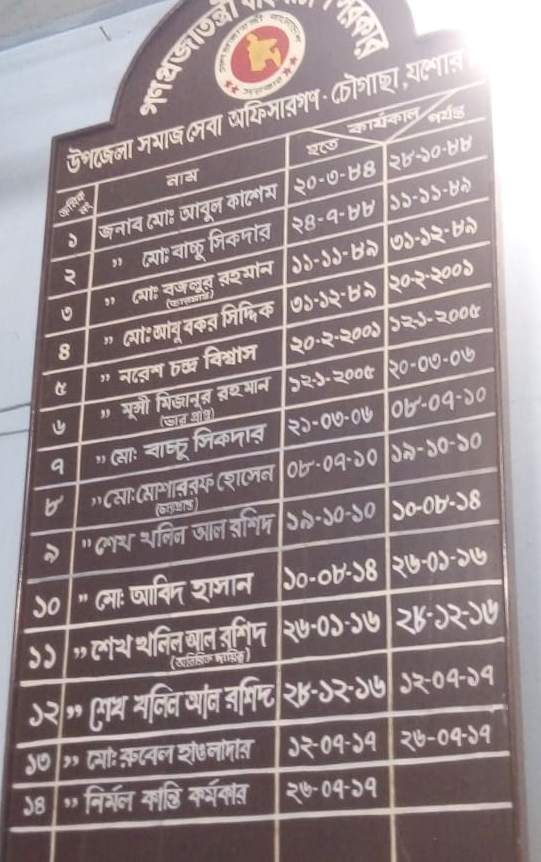 গণপ্রজাতন্ত্রী বাংলাদেশ সরকার
উপজেলা সমাজ সেবা অফিসারগণ- চৌগাছা, যশোর
ক্রমিক নং নাম কার্যকাল
হতে পর্যন্ত
১ জনাব মোঃ আবুল কাশেম ২০-৩-৮৪ ২৮-১০-৮৮
২ " মোঃ বাচ্চু সিকদার ২৪-৭-৮৮ ১১-১১-৮৯
৩ " মোঃ বজলুর রহমান ১১-১১-৮৯ ৩১-১২-৮৯
৪ " মোঃ আবু বকর সিদ্দিক ৩১-১২-৮৯ ২০-২-২০০১
৫ " নরেশ চন্দ্র বিশ্বাস ২০-২-২০০১ ১২-১-২০০৫
৬ " মূন্সী মিজানুর রহমান ১২-১-২০০৫ ২০-০৩-০৬
(ভার প্রাপ্ত)
৭ " মোঃ বাচ্চু সিকদার ২১-০৩-০৬ ০৮-০৭-১০
৮ " মোঃ মোশাররফ হোসেন ০৮-০৭-১০ ১৯-১০-১০
(ভারপ্রাপ্ত)
৯ " শেখ খলিল আল রশিদ ১৯-১০-১০ ১০-০৮-১৪
১০ " মোঃ আবিদ হাসান ১০-০৮-১৪ ২৬-০১-১৬
১১ " শেখ খলিল আল রশিদ ২৬-০১-১৬ ২৮-১২-১৬
(অতিরিক্ত দায়িত্ব)
১২ " শেখ খলিল আল রশিদ ২৮-১২-১৬ ১২-০৭-১৭
১৩ " মোঃ রুবেল হাওলাদার ১২-০৭-১৭ ২৬-০৭-১৭
১৪ " নির্মল কান্তি কর্মকার ২৬-০৭-১৭